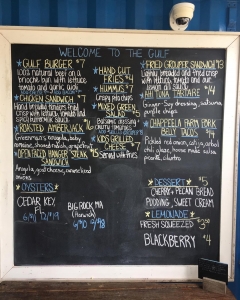 WELCOME TO THE GULF
GULF BURGER $7
local natural beef on a
brioche bun with lettuce
tomato and garlic aioli
CHICKEN SANDWICH $7
hand breaded tenders fried
crisp with lettuce, tomato and
spicy buttermilk sauce
ROASTED AMBERJACK $16
romaine,
shaved marinated
OPEN FACED HANGER STEAK $15
SANDWICH
Arugula, goat cheese, caramelized
onions
OYSTERS:
CEDAR KEY,
FL
BIG ROCK, MA
(Harwich)
HAND CUT
FRIES $4
HUMMUS $7
Crispy pita chips
MIXED GREEN $5
SALAD
Balsamic dressing
cherry tomatoes
KIDS GRILLED $6
CHEESE
Served with fries
FRIED GROUPER SANDWICH $13
lightly breaded and fried crisp
with lettuce, tomato and our
lemon dill sauce
AHI TUNA TARTARE $14
Ginger-Soy dressing, satsuma,
purple chips
CHAPPELLA FARM PORK
BELLY TACOS $4
Pickled red onion, cotija, arbol
chili glaze, house made salsa
picante, cilantro
DESSERT $5
CHERRY & PECAN BREAD
PUDDING, SWEET CREAM
LEMONADE
FRESH SQUEEZED $3.00
BLACKBERRY $4